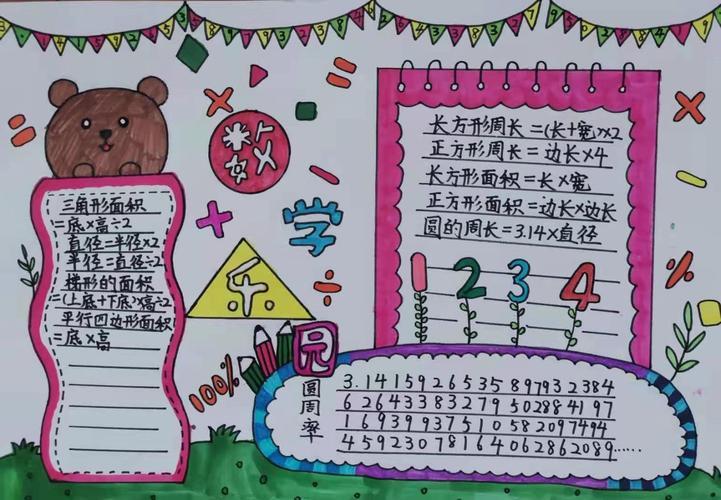 数
学
乐
园
三角形面积
=底×高÷2
直径=半径×2
半径=直径÷2
梯形的面积
=(上底+下底)×高÷2
平行四边形面积
=底×高
长方形周长=(长+宽)×2
正方形周长=边长×4
长方形面积=长×宽
正方形面积=边长×边长
圆的周长=3.14×直径
1 2 3 4
100%
圆周率
3.1415926535897932384
62643383279502884197
16939937510582097494
45923078164062862089......